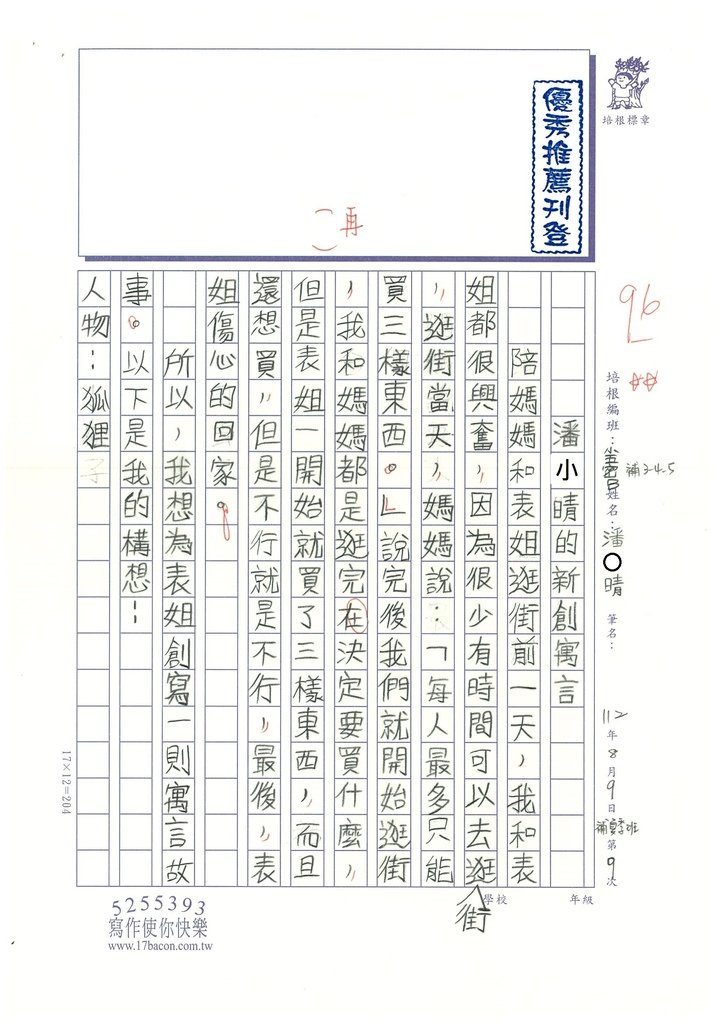 培根標章
優秀推薦刊登
再
96
培根編班: 補3-4.5 姓名:潘○晴 筆名: 112年8月9日 第9次
學校 年級
潘小晴的新創寓言
陪媽媽和表姐逛街前一天,我和表
姐都很興奮,因為很少有時間可以去逛街
,逛街當天,媽媽說:「每人最多只能
買三樣東西。」說完後我們就開始逛街
,我和媽媽都是逛完在決定要買什麼,
但是表姐一開始就買了三樣東西,而且
還想買,但是不行就是不行,最後,表
姐傷心的回家。
所以,我想為表姐創寫一則寓言故
事。以下是我的構想:
人物:狐狸
17×12=204
5255393
寫作使你快樂
www.17bacon.com.tw